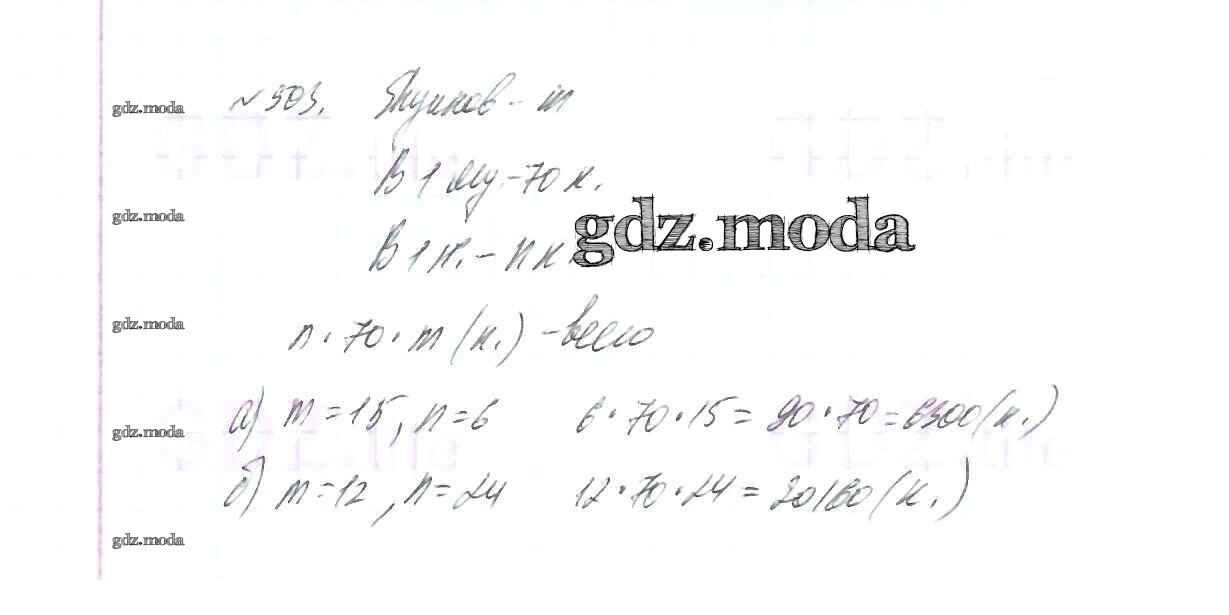 №503. Ящиков – m
gdz.moda
В 1 ящ. – 70 к.
gdz.moda
gdz.moda
В 1 к. – n к
n · 70 · m (к.) – всего
gdz.moda
а) m = 15, n = 6 6 · 70 · 15 = 90 · 70 = 6300 (к.)
gdz.moda
б) m = 12, n = 24 12 · 70 · 24 = 20160 (к.)
gdz.moda